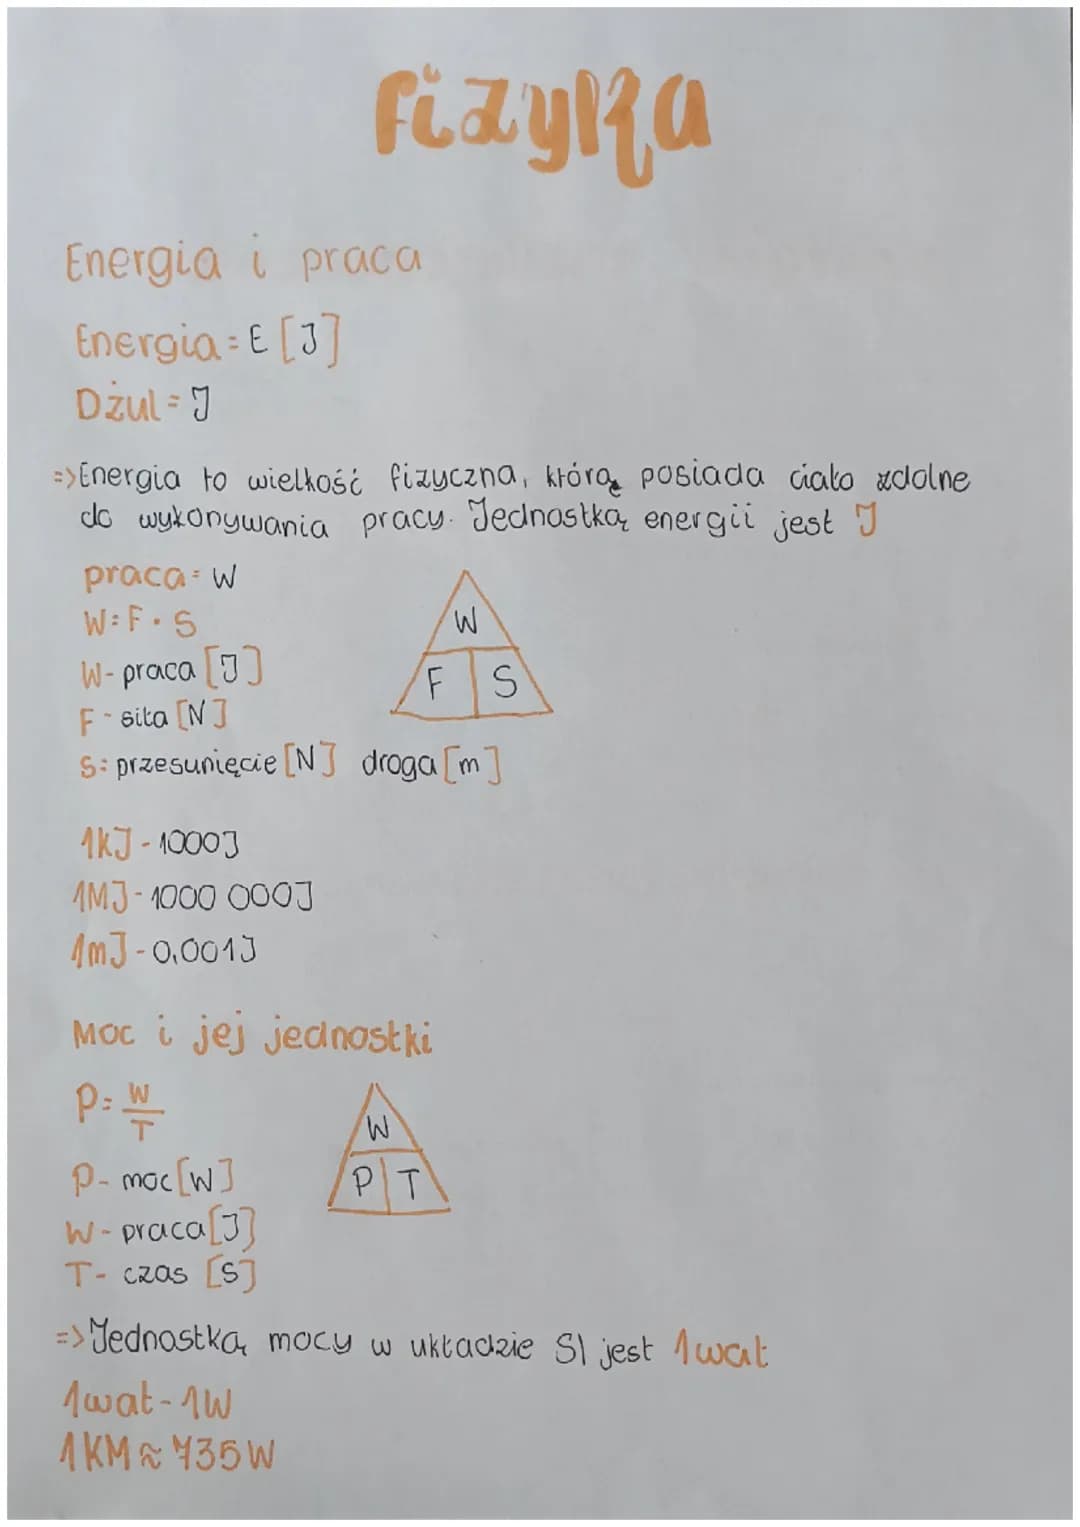 fizyka
Energia i praca
Energia = E [J]
Dżul = J
=> Energia to wielkość fizyczna, którą posiada ciało zdolne
do wykonywania pracy. Jednostką energii jest J
praca = W
W = F · S
W - praca [J]
F - siła [N]
S: przesunięcie [N] droga [m]
W
F S
1kJ - 1000J
1MJ - 1000 000J
1mJ - 0,001J
Moc i jej jednostki
P = W/T
P - moc [W]
W - praca [J]
T - czas [s]
W
P T
=> Jednostką mocy w układzie SI jest 1 wat
1 wat - 1W
1 KM ≈ 735 W